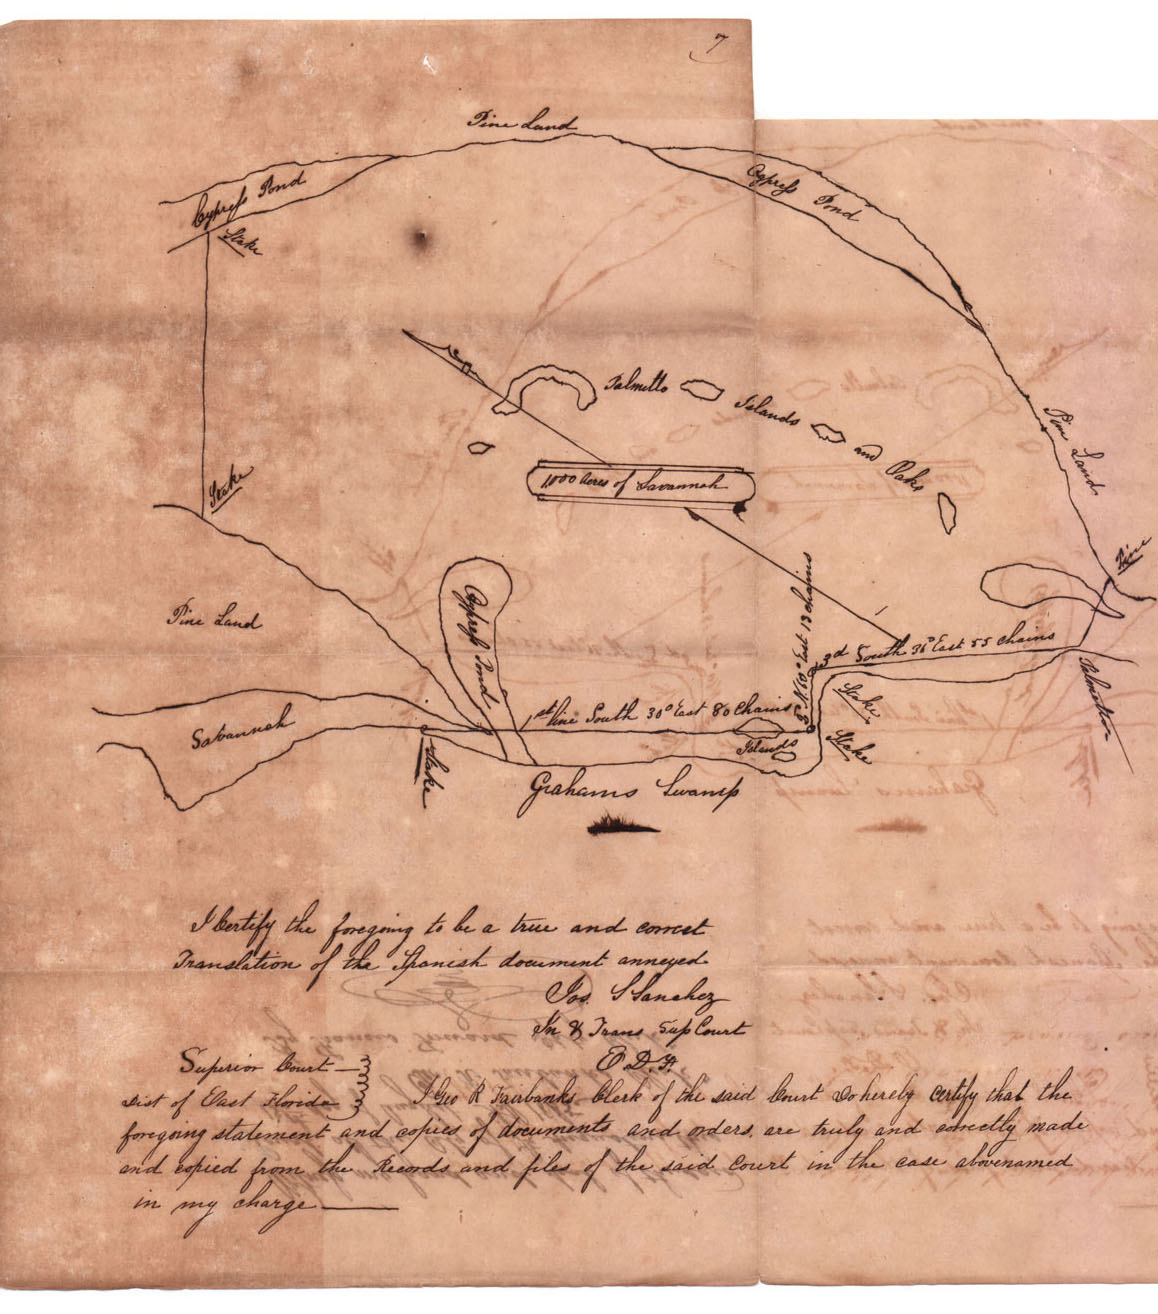 7
Pine Land
Cypress Pond
Cypress Pond
Stake
Palmetto Islands and Oaks
Pine Land
1000 Acres of Savannah
Stake
Pine
Cypress Pond
Pine Land
2d N. 60° East 13 chains
3d South 36° East 55 chains
Stake
Palmetto
1st line South 30° East 80 Chains
Savannah
Islands
Stake
Stake
Grahams Swamp
I Certify the foregoing to be a true and correct
Translation of the Spanish document annexed
Jos. S Sanchez
In & Trans Sup Court
E. D. F.
Superior Court
Dist of East Florida
I Geo R Fairbanks Clerk of the said Court Do hereby certify that the
foregoing statement and copies of documents and orders, are truly and correctly made
and copied from the Records and files of the said Court in the case abovenamed
in my charge